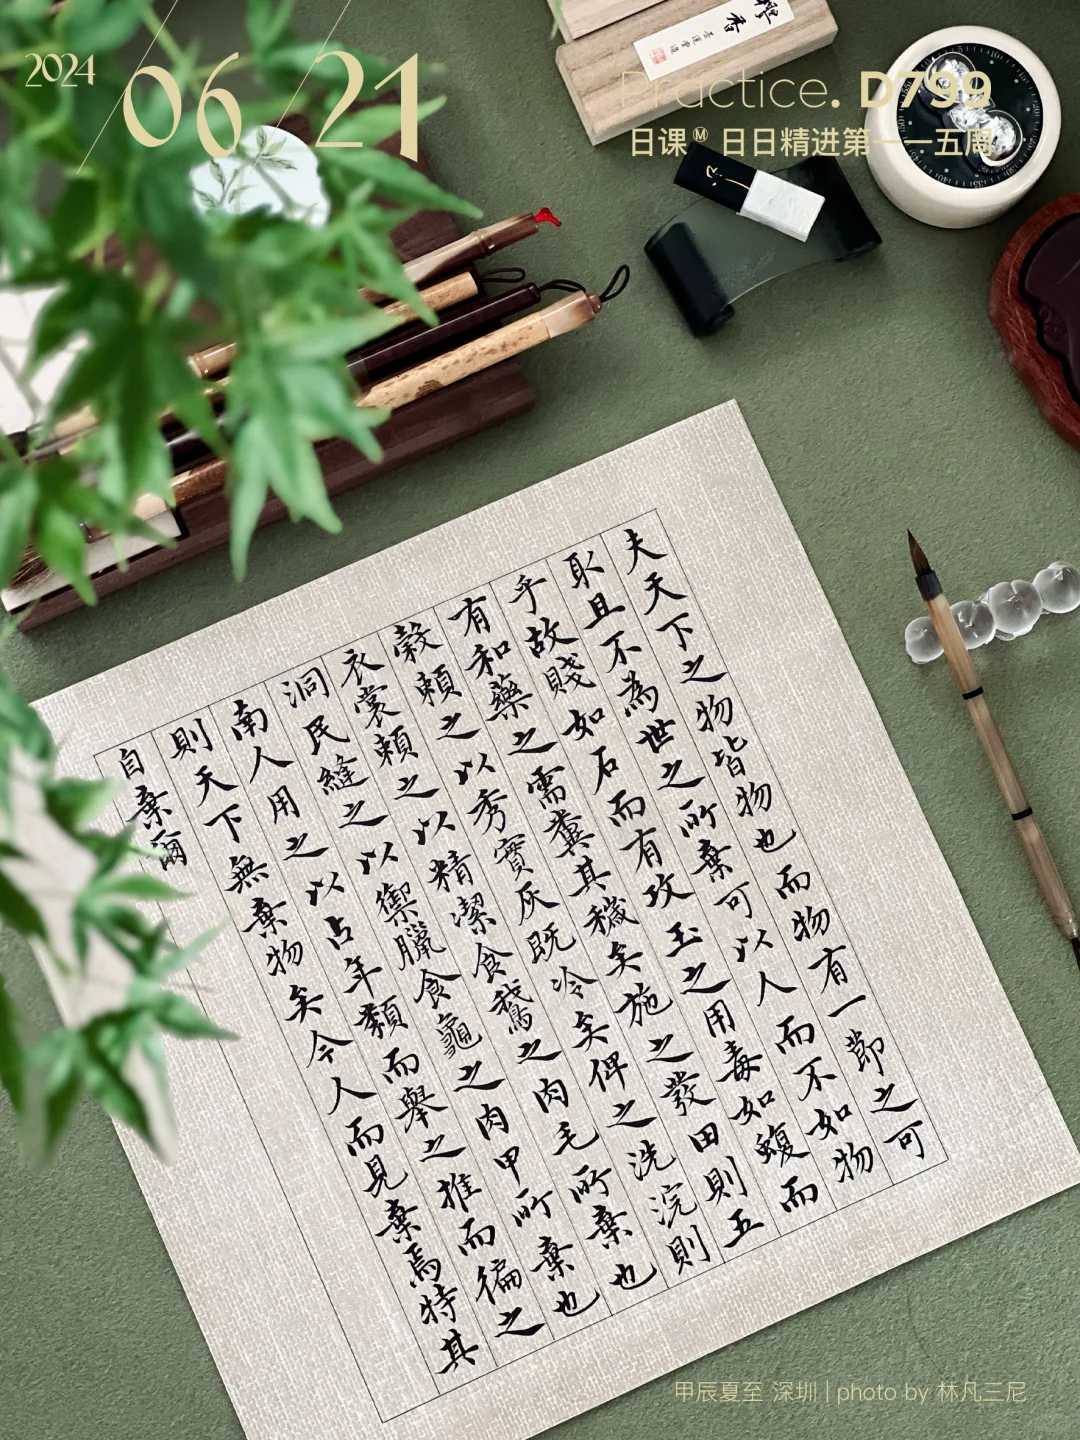 2024 06/21
Practice. D799
日课Ⓜ 日日精进第一一五周
夫天下之物皆物也而物有一節之可
取且不為世之所棄可以人而不如物
乎故賤如石而有攻玉之用毒如蝮而
有和藥之需糞其穢矣施之發田則五
穀賴之以秀實灰既冷矣俾之洗浣則
衣裳賴之以精潔食鵞之肉毛所棄也
洞民縫之以禦臘食龜之肉甲所棄也
南人用之以占年類而舉之推而徧之
則天下無棄物矣今人而見棄焉特其
自棄爾
甲辰夏至 深圳 | photo by 林凡三尼